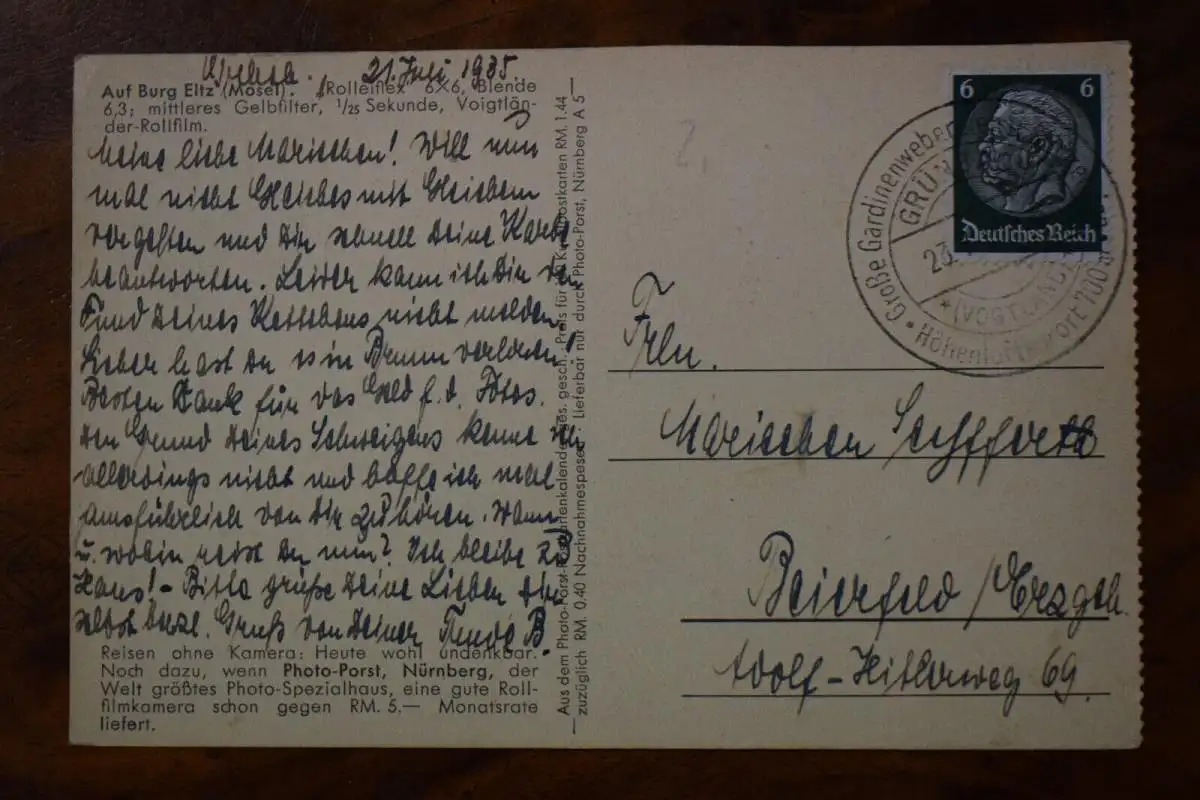 21. Juli 1935.
Auf Burg Eltz (Mosel). Rolleiflex 6×6, Blende
6,3; mittleres Gelbfilter, 1/25 Sekunde, Voigtlän-
der-Rollfilm.
Meine liebe Marischen! Will nun
mal nicht Gleiches mit Gleichem
vergelten und Dir schnell Deine Karte
beantworten. Leider kann ich Dir den
Fund Deines Kettchens nicht melden.
Sicher hast Du es in Brunn verloren!
Besten Dank für das Geld f. d. Fotos.
Den Grund Deines Schweigens kenne ich
allerdings nicht und hoffe ich mal
ausführlich von Dir zu hören. Wann
u. wohin reist Du nun? Ich bleibe zu
Haus! – Bitte grüße Deine Lieben
selbst herzl. Gruß von Deiner B.
Reisen ohne Kamera: Heute wohl undenkbar.
Noch dazu, wenn Photo-Porst, Nürnberg, der
Welt größtes Photo-Spezialhaus, eine gute Roll-
filmkamera schon gegen RM. 5.— Monatsrate
liefert.
Aus dem Photo-Porst-Postkartenkalender. Ges. gesch. Preis für Postkarten RM. 1.44
zuzüglich RM. 0,40 Nachnahmespesen. Lieferbar nur durch Photo-Porst, Nürnberg A 5
6 6
Deutsches Reich
Große Gardinenweberei
Höhenluftkurort 700 m
GRÜN
23.
(VOGTLAND)
2.
Frln.
Marischen Seyfferth
Beierfeld /Erzgeb.
Adolf-Hitlerweg 69.